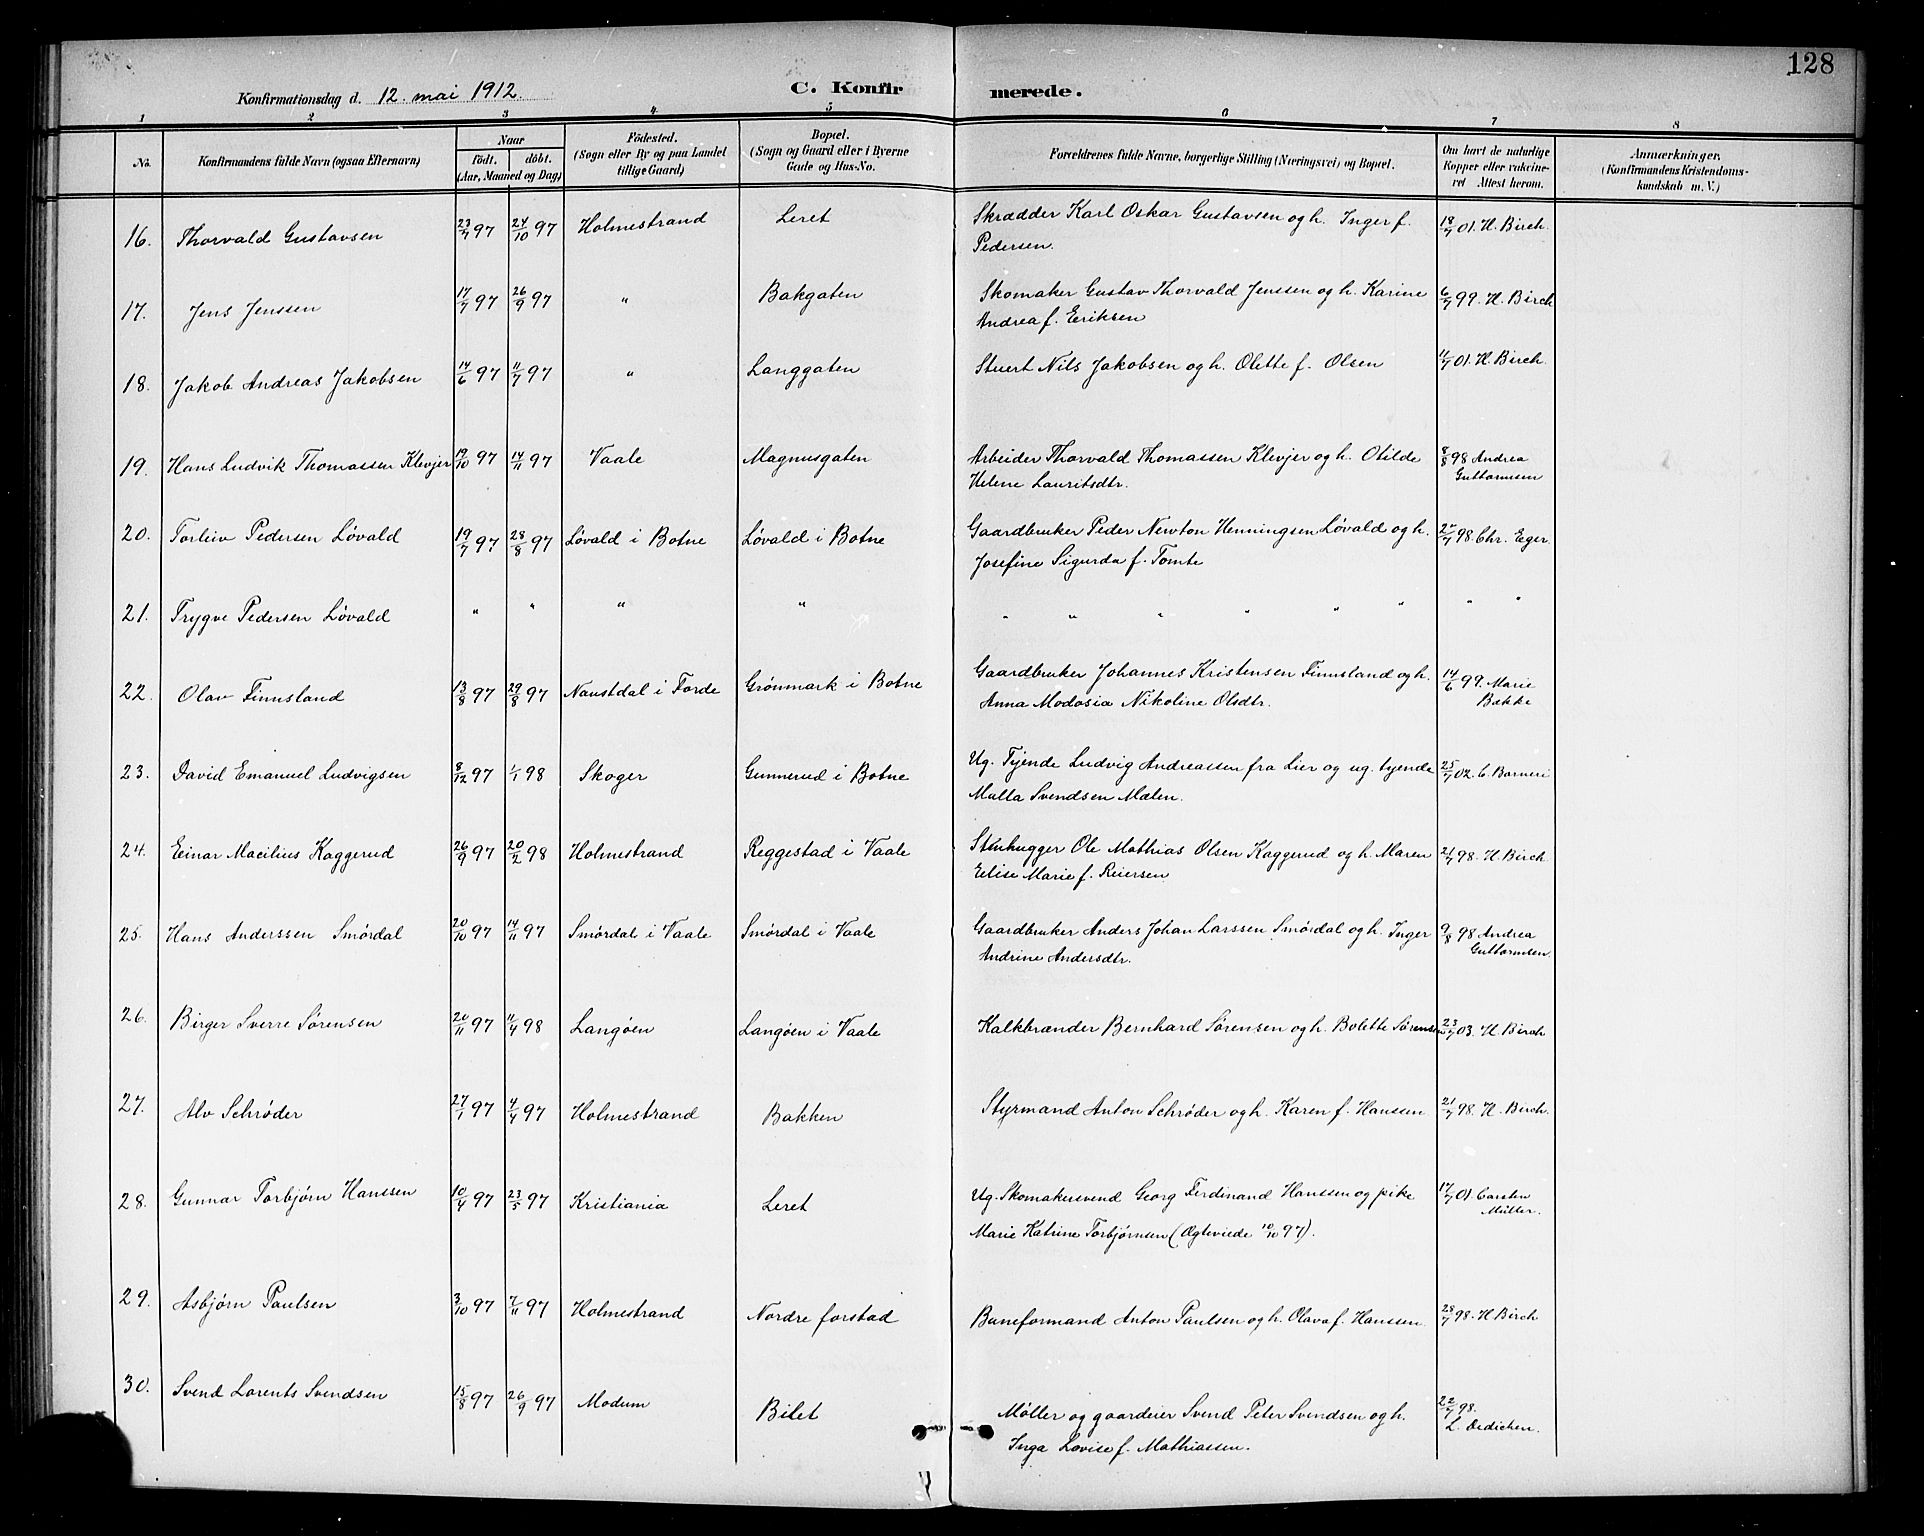 128
Konfirmationsdag d. 12. mai 1912. C. Konfirmerede.
1 2 3 4 5 6 7 8
No. Konfirmandens fulde Navn (ogsaa Efternavn) Naar födt. döbt. (Aar, Maaned og Dag) Födested. (Sogn eller By og paa Landet tillige Gaard) Bopæl. (Sogn og Gaard eller i Byerne Gade og Hus-No. Forældrenes fulde Navne, borgerlige Stilling (Næringsvei) og Bopæl. Om havt de naturlige Kopper eller vakcineret Attest herom. Anmærkninger. (Konfirmandens Kristendomskundskab m. V.)
16. Thorvald Gustavsen 23/7 97 24/10 97 Holmestrand Leret Skrædder Karl Oskar Gustavsen og h. Inger f. 18/7 01. H. Birch.
Pedersen.
17. Jens Jenssen 17/7 97 26/9 97 " Bakgaten Skomaker Gustav Thorvald Jenssen og h. Karine 6/7 99. H. Birch
Andrea f. Eriksen
18. Jakob Andreas Jakobsen 14/6 97 11/7 97 " Langgaten Stuert Nils Jakobsen og h. Olette f. Olsen 11/7 01. H. Birch.
19. Hans Ludvik Thomassen Klevjer 19/10 97 14/11 97 Vaale Magnusgaten Arbeider Thorvald Thomassen Klevjer og h. Otilde 8/8 98 Andrea
Helene Lauritsdtr. Guttormsen
20. Torleiv Pedersen Løvald 19/7 97 28/8 97 Løvald i Botne Løvald i Botne Gaardbruker Peder Newton Henningsen Løvald og h. 98. Chr. Eger.
Josefine Sigurda f. Tomte
21. Trygve Pedersen Løvald " " " " " " " " " " " "
22. Olav Finnsland 13/8 97 29/8 97 Naustdal i Førde Grönmark i Botne Gaardbruker Johannes Kristensen Finnsland og h. 14/6 99. Marie
Anna Modosia Nikoline Olsdtr. Bakke
23. David Emanuel Ludvigsen 8/12 97 1/1 98 Skoger Gunnerud i Botne Ug. Tjende Ludvig Andreassen fra Lier og ug. tjende 25/7 02. C. Barneri
Malla Svendsen Mælen.
24. Einar Macilius Kaggerud 26/9 97 20/2 98 Holmestrand Reggestad i Vaale Stenhugger Ole Mathias Olsen Kaggerud og h. Maren 21/7 98. H. Birch
Elise Marie f. Reiersen
25. Hans Anderssen Smördal 20/10 97 14/11 97 Smördal i Vaale Smördal i Vaale Gaardbruker Anders Johan Larssen Smördal og h. Inger 9/8 98 Andrea
Andrine Andersdtr. Guttormsen.
26. Birger Sverre Sørensen 20/11 97 11/4 98 Langöen Langöen i Vaale Kalkbrænder Bernhard Sørensen og h. Bolette Sørensen 23/7 03. H. Birch
27. Alv Schrøder 27/1 97 4/4 97 Holmestrand Bakken Styrmand Anton Schrøder og h. Karen f. Hanssen 21/7 98. H. Birch.
28. Gunnar Torbjørn Hanssen 10/4 97 23/5 97 Kristiania Leret Ug. Skomakersvend Georg Ferdinand Hanssen og pike 17/7 01. Carsten
Marie Katrine Torbjørnsen (Ægteviede 10/10 97). Müller.
29. Asbjørn Paulsen 3/10 97 7/11 97 Holmestrand Nordre forstad Baneformand Anton Paulsen og h. Olava f. Hanssen 28/7 98. H Birch
30. Svend Lorents Svendsen 15/8 97 26/9 97 Modum Bilet Møller og gaardeier Svend Peter Svendsen og h. 22/7 98.
Inga Lovise f. Mathiassen. L. Dedichen.